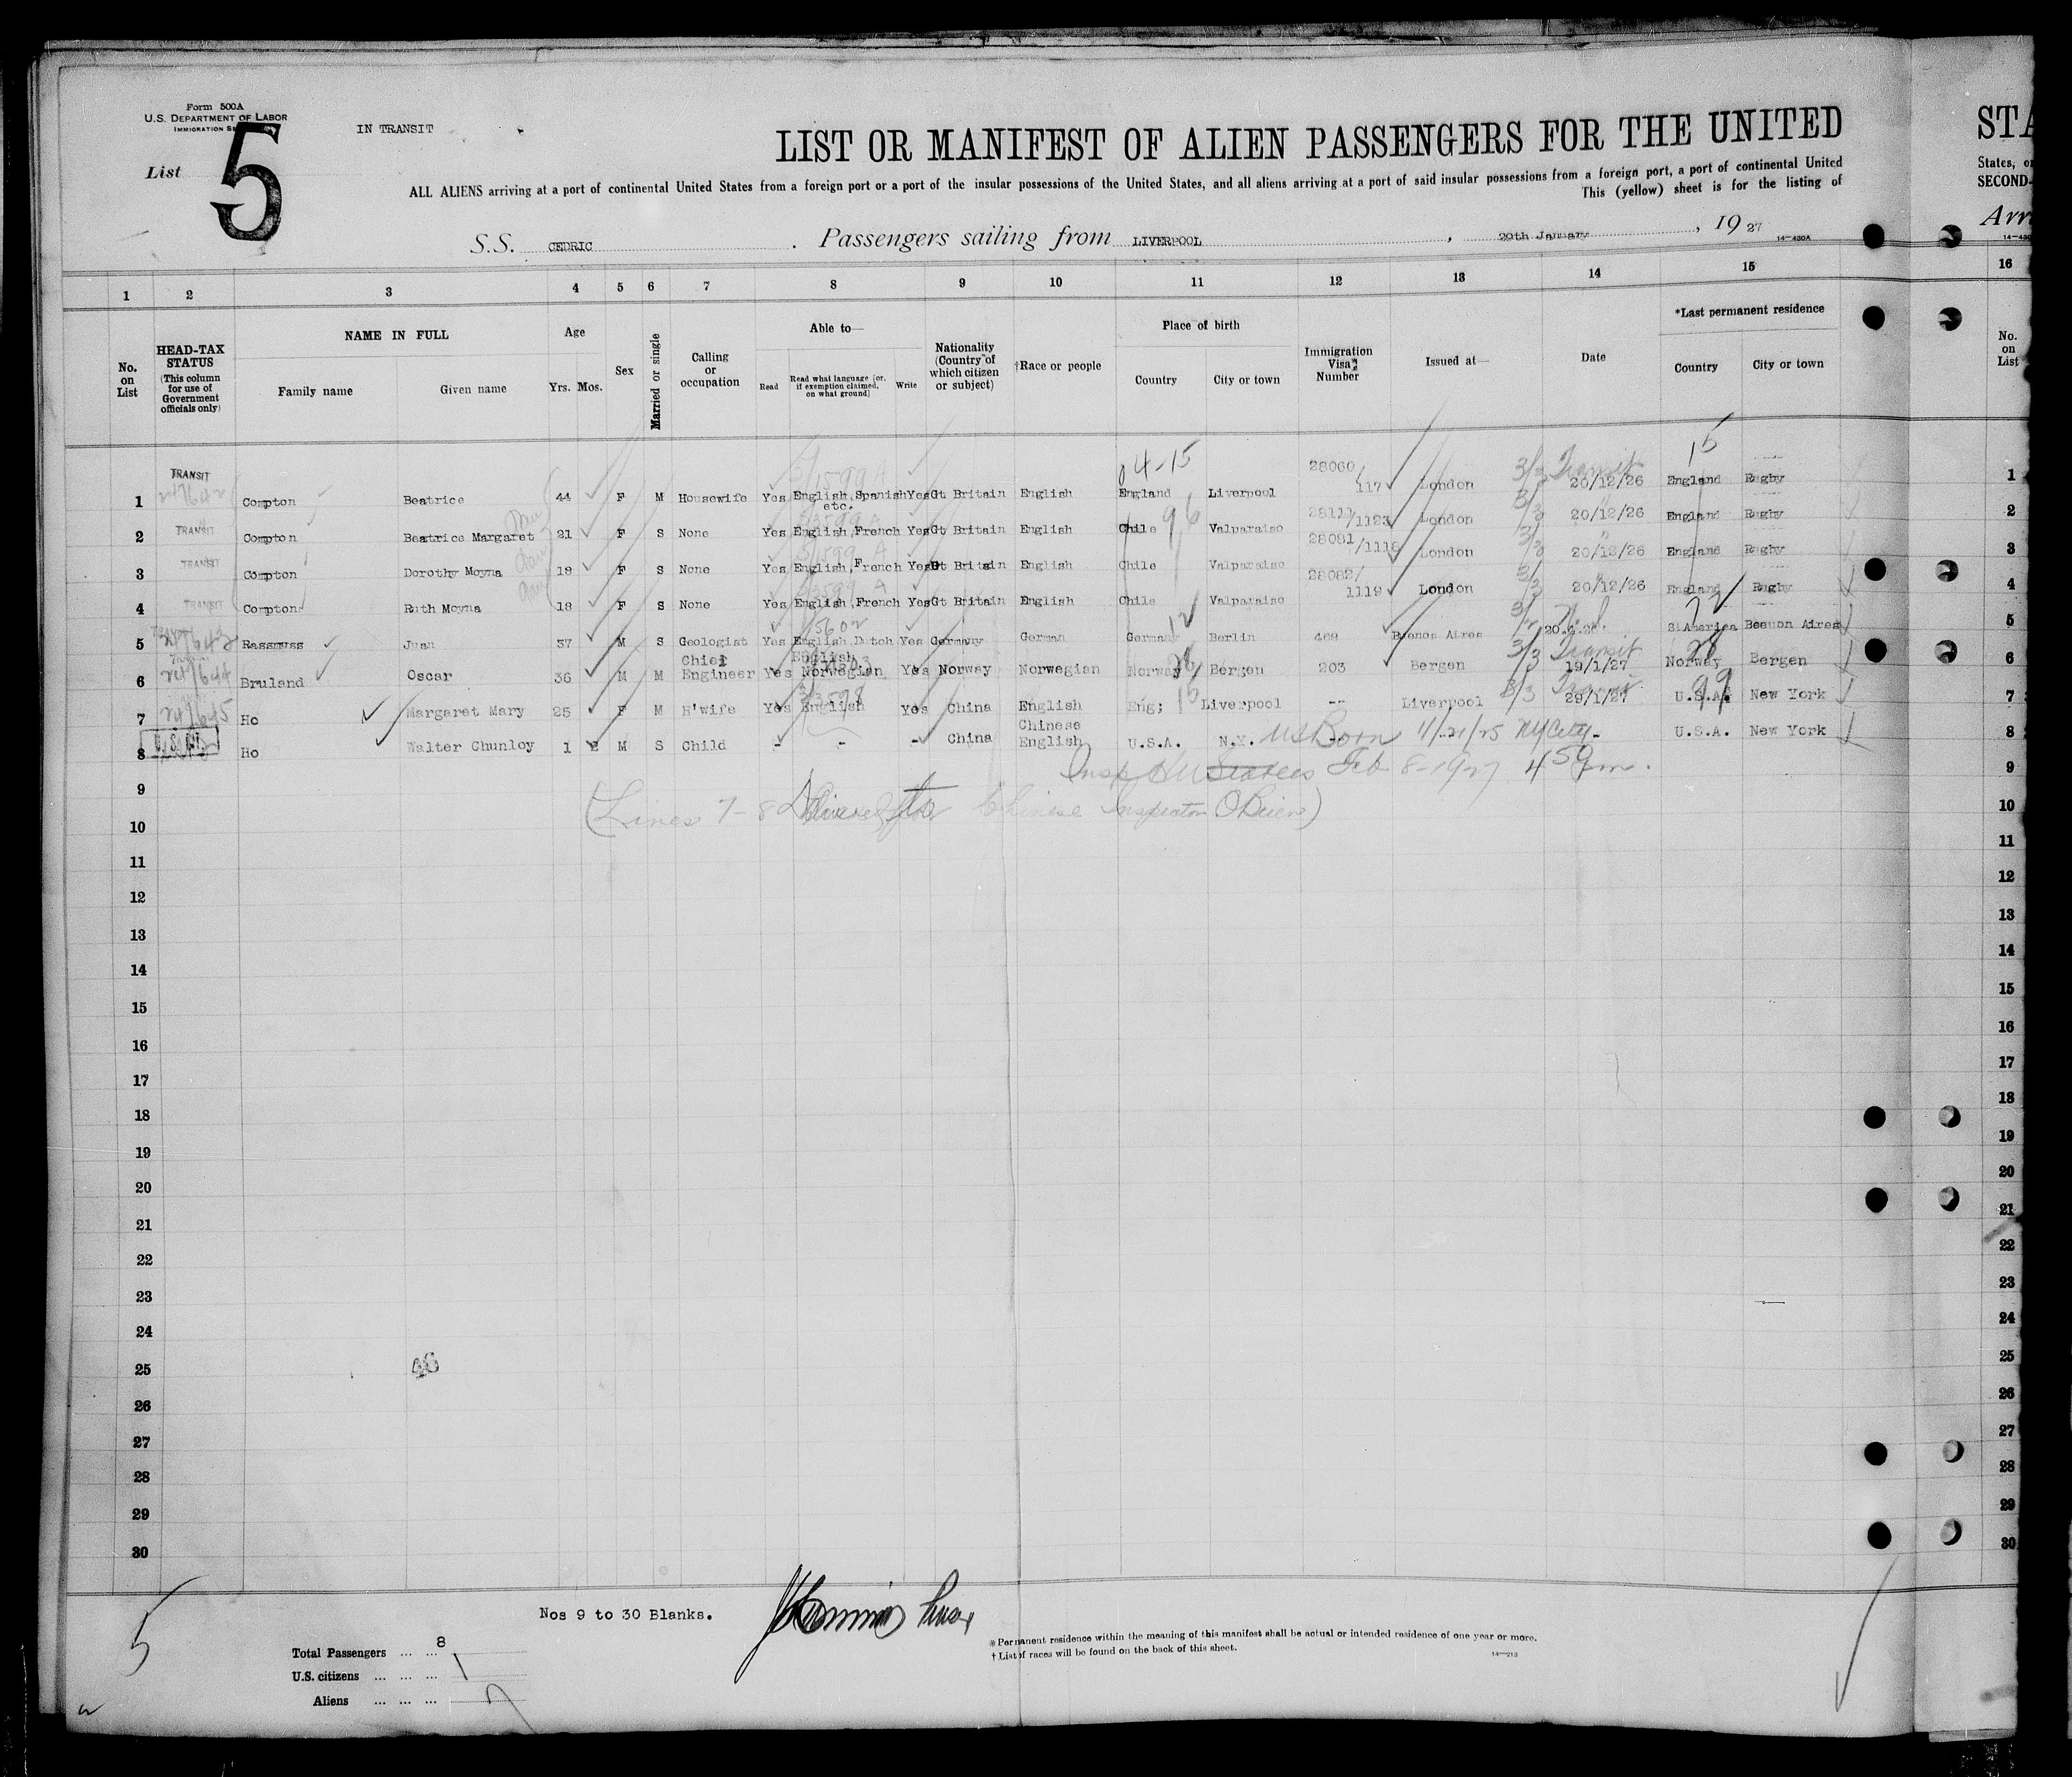 Form 500A
U.S. DEPARTMENT OF LABOR
IMMIGRATION
IN TRANSIT
List 5
LIST OR MANIFEST OF ALIEN PASSENGERS FOR THE UNITED
STA
ALL ALIENS arriving at a port of continental United States from a foreign port or a port of the insular possessions of the United States, and all aliens arriving at a port of said insular possessions from a foreign port, a port of continental United
States, or
This (yellow) sheet is for the listing of
SECOND-
S.S. CEDRIC. Passengers sailing from LIVERPOOL, 29th January, 19 27
Arr
14-430A
1 2 3 4 5 6 7 8 9 10 11 12 13 14 15 16
No. on List
HEAD-TAX STATUS (This column for use of Government officials only)
NAME IN FULL Family name Given name
Age Yrs. Mos.
Sex
Married or single
Calling or occupation
Able to— Read Read what language [or, if exemption claimed, on what ground] Write
Nationality (Country of which citizen or subject)
†Race or people
Place of birth Country City or town
Immigration Visa Number
Issued at—
Date
*Last permanent residence Country City or town
No. on List
04-15 15
1 TRANSIT Compton Beatrice 44 F M Housewife Yes English, Spanish etc. Yes Gt Britain English England Liverpool 28060/117 London Transit 20/12/26 England Rugby 1
2 TRANSIT Compton Beatrice Margaret 21 F S None Yes English, French Yes Gt Britain English Chile Valparaiso /1123 London 20/12/26 England Rugby 2
3 TRANSIT Compton Dorothy Moyna 18 F S None Yes English, French Yes Gt Britain English Chile Valparaiso 28081/1118 London 20/12/26 England Rugby 3
4 TRANSIT Compton Ruth Moyna 18 F S None Yes English, French Yes Gt Britain English Chile Valparaiso 28082/1119 London 20/12/26 England Rugby 4
5 Rassmuss Juan 37 M S Geologist Yes English, Dutch Yes Germany German Germany Berlin 469 Buenos Aires S America Beuon Aires 5
6 Bruland Oscar 36 M M Chief Engineer Yes English Norwegian Yes Norway Norwegian Norway Bergen 203 Bergen Transit 19/1/27 Norway Bergen 6
7 247645 Ho Margaret Mary 25 F M H'wife Yes English Yes China English Eng; Liverpool -- Liverpool 29/1/27 U.S.A. New York 7
8 Ho Walter Chunloy 1 2 M S Child - - - China Chinese English U.S.A. N.Y. US Born 11/21/25 NY City U.S.A. New York 8
9 Feb 8-1927 4 50 pm. 9
10 (Lines 7-8 Chinese Inspector OBrien) 10
11 11
12 12
13 13
14 14
15 15
16 16
17 17
18 18
19 19
20 20
21 21
22 22
23 23
24 24
25 25
26 26
27 27
28 28
29 29
30 30
5
Nos 9 to 30 Blanks.
Total Passengers ... ... 8
U.S. citizens ... ... ... 1
Aliens ... ... ... 7
*Permanent residence within the meaning of this manifest shall be actual or intended residence of one year or more.
† List of races will be found on the back of this sheet.
14-213